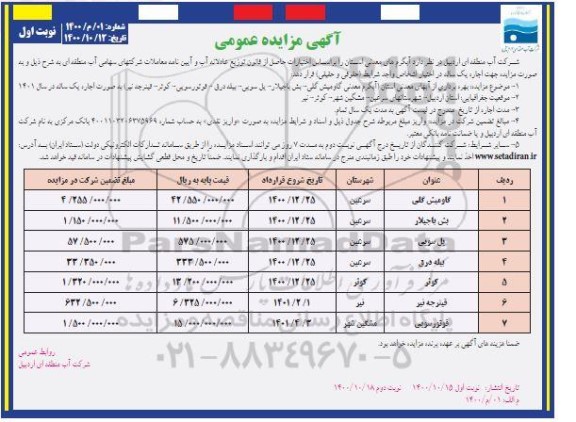 شماره: ۰۱/م/۱۴۰۰
تاریخ: ۱۴۰۰/۱۰/۱۲
نوبت اول
آگهی مزایده عمومی
شرکت آب منطقه ای اردبیل در نظر دارد آبگرم های معدنی استان را براساس اختیارات حاصل از قانون توزیع عادلانه آب و آیین نامه معاملات شرکتهای سهامی آب منطقه ای به شرح ذیل و به
صورت مزایده جهت اجاره یک ساله در اختیار اشخاص واجد شرایط (حقوقی و حقیقی) قرار دهد.
۱- موضوع مزایده: بهره برداری از آبهای معدنی استان گاومیش گلی- بش باجیلار- پل سویی- بیله درق - قوتورسویی- کوثر- قینرجه نیر) به صورت اجاره یک ساله در سال ۱۴۰۱
۲- موقعیت جغرافیایی: استان اردبیل- شهرستانهای سرعین- مشگین شهر- کوثر- نیر
۳- مدت اجاره از تاریخ مندرج در لیست آگهی به مدت یک سال تمام.
۴- مبلغ تضمین شرکت در مزایده: واریز مبلغ مربوطه شرح جدول ذیل و اسناد و شرایط مزایده به صورت «واریز نقدی» به حساب شماره بانک مرکزی به نام شرکت
آب منطقه ای اردبیل و یا ضمانت نامه بانکی معتبر.
۵- سایر شرایط: شرکت کنندگان از تاریخ درج آگهی نوبت دوم به مدت ۷ روز می توانند اسناد مزایده را از طریق سامانه تدارکات الکترونیکی دولت (ستاد ایران) به آدرس:
www.setadiran.ir اخذ نمایند و پیشنهادات خود را طبق زمانبندی مندرج در سامانه ستاد ایران اقدام و بارگذاری نمایند. ضمنا تاریخ و محل قطعی گشایش پیشنهادات در سامانه قید خواهد شد.
ردیف عنوان شهرستان تاریخ شروع قرارداد قیمت پایه به ریال مبلغ تضمین شرکت در مزایده
۱ گاومیش گلی سرعین ۱۴۰۰/۱۲/۲۵ ۴۲/۵۵۰/۰۰۰/۰۰۰ ۴/۲۵۵/۰۰۰/۰۰۰
۲ بش باجیلار سرعین ۱۴۰۰/۱۲/۲۵ ۱۱/۵۰۰/۰۰۰/۰۰۰ ۱/۱۵۰/۰۰۰/۰۰۰
۳ پل سویی سرعین ۱۴۰۰/۱۲/۲۵ ۵۷۵/۰۰۰/۰۰۰ ۵۷/۵۰۰/۰۰۰
۴ بیله درق سرعین ۱۴۰۰/۱۲/۲۵ ۳۳۳/۵۰۰/۰۰۰ ۳۳/۳۵۰/۰۰۰
۵ کوثر کوثر ۱۴۰۰/۱۲/۲۵ ۱۳/۲۰۰/۰۰۰/۰۰۰ ۱/۳۲۰/۰۰۰/۰۰۰
۶ قینرجه نیر نیر ۱۴۰۱/۲/۱ ۶/۳۲۵/۰۰۰/۰۰۰ ۶۳۲/۵۰۰/۰۰۰
۷ قوتورسویی مشگین شهر ۱۴۰۱/۴/۳ ۱۵/۰۰۰/۰۰۰/۰۰۰ ۱/۵۰۰/۰۰۰/۰۰۰
ضمنا هزینه های آگهی بر عهده برنده مزایده خواهد بود.
۰۲۱-۸۸۳۴۹۶۷۰-۵
روابط عمومی
شرکت آب منطقه ای اردبیل
تاریخ انتشار: نوبت اول ۱۴۰۰/۱۰/۱۵ نوبت دوم ۱۴۰۰/۱۰/۱۸
م الف: ۰۱/م/۱۴۰۰